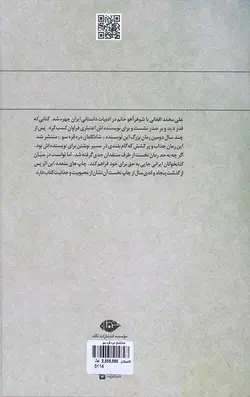 علی محمد افغانی با شوهر آهو خانم در ادبیات داستانی ایران چهره شد. کتابی که
قدر دید و بر صدر نشست و برای نویسنده‌اش اعتباری فراوان کسب کرد. پس از
چند سال دومین رمان بزرگ این نویسنده، شادکامان دره قره سو، منتشر شد.
این رمان جذاب و پر کشش که گام بلندی در مسیر نوشتن برای نویسنده‌اش بود.
اگر چه به حد رمان نخست از طرف منتقدان جدی گرفته نشد. اما توانست در میان
کتابخوانان ایرانی جایی به حق برای خود فراهم کند. چاپ های متعدد این اثر پس
از گذشت پنجاه و اندی سال از چاپ نخست آن نشان از محبوبیت و جذابیت کتاب دارد.
موسسه انتشارات نگاه
شادکامان دره قره سو
2,550,000
5114